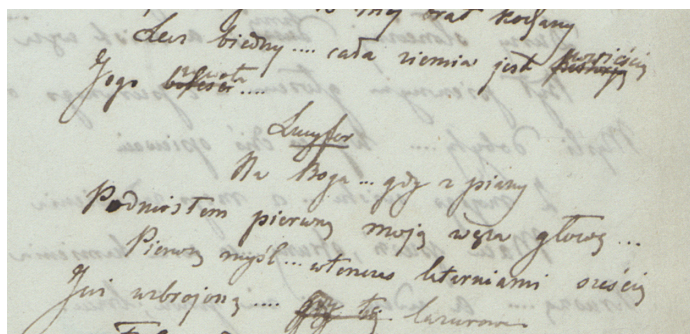 to mój brat kochany
Lecz biedny.... cała ziemia jest
Jego ....
Lucyfer
Na Boga... gdy z piany
Podniosłem pierwszą moją węża głowę...
Pierwszą myśl... wtenczas latarniami sześcią
Już uzbrojoną.... lazurowe